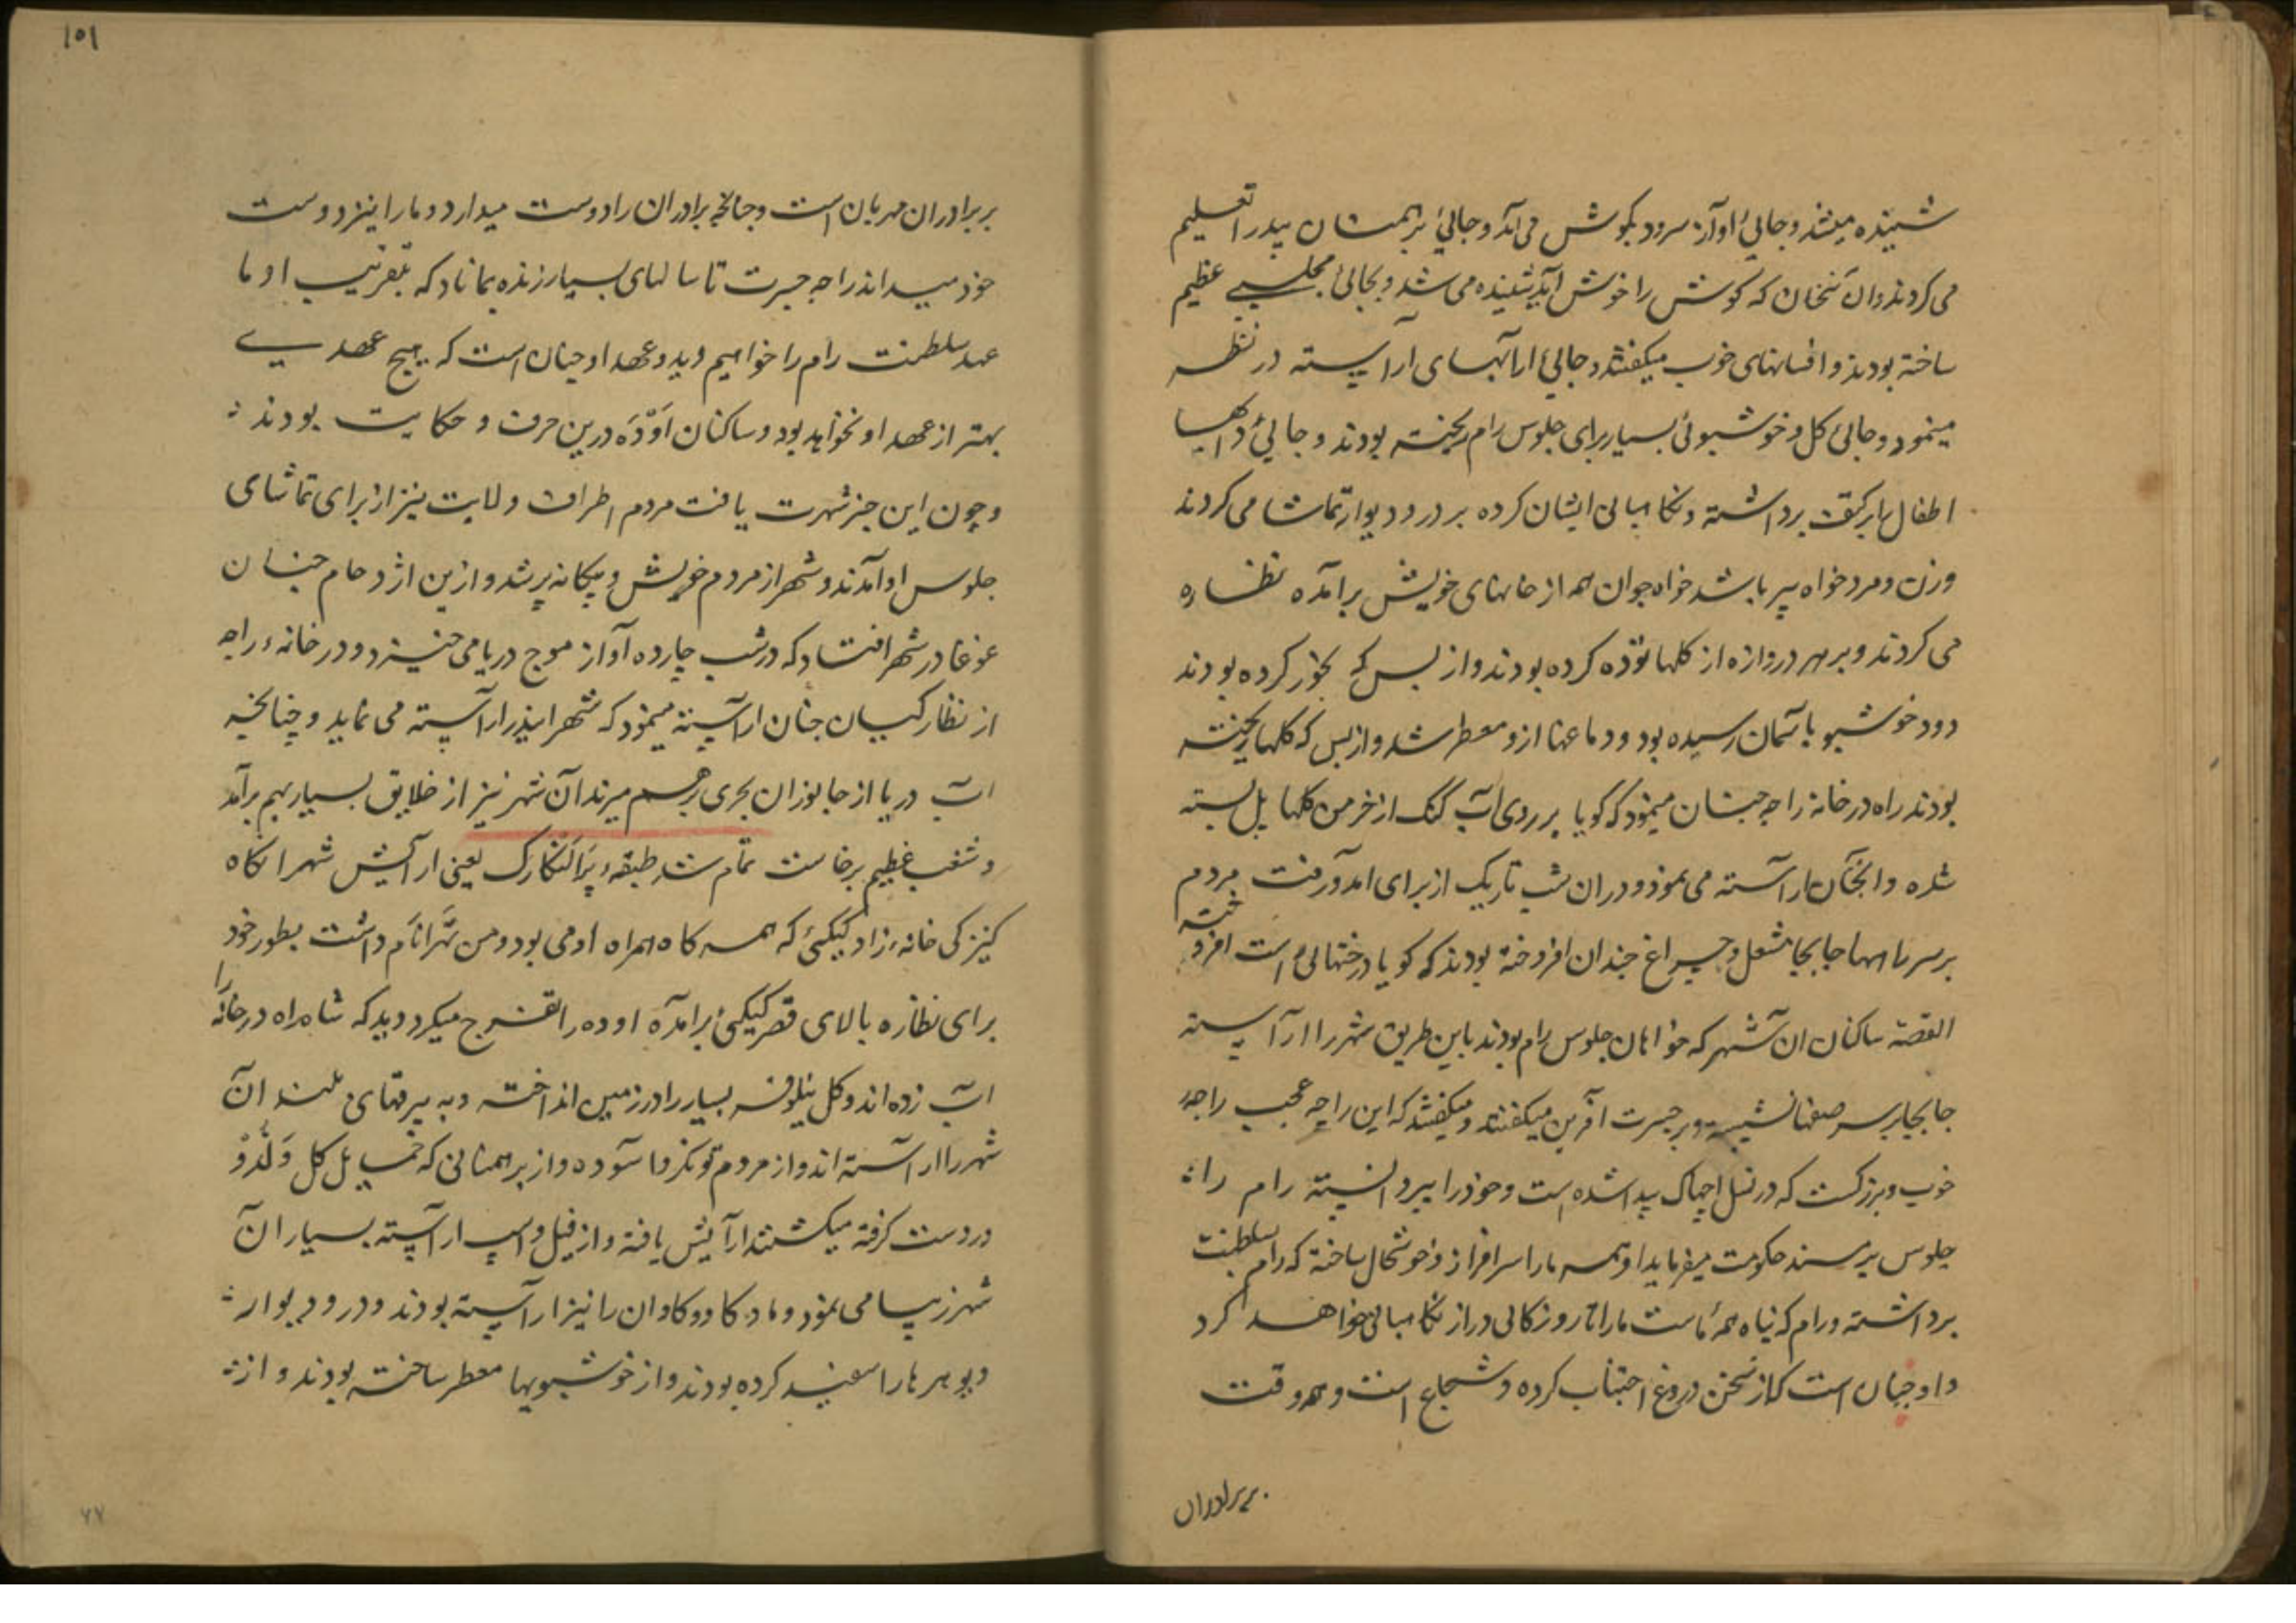 شنیده میشد و جائی اواز سرود بگوش می آمد و جائی برهمنان بیدرا تعلیم
می کردند و ان سخنان که گوش را خوش آید شنیده می شد و بجائی مجلسے عظیم
ساخته بودند و افسانهای خوب میگفتند و جائی ارابهای آراسته در نظر
مینمود و جائی گل و خوشبوئی بسیار برای جلوس رام ریخته بودند و جائی دایها
اطفال را برکتف برداشته و نگاهبانی ایشان کرده بر در و دیوار تماشا می کردند
وزن و مرد خواه پیر باشد خواه جوان همه از خانهای خویش برآمده نظاره
می کردند و بر هر دروازه از گلها توده کرده بودند و از بس که بخور کرده بودند
دود خوشبو بآسمان رسیده بود و دماغها ازو معطر شد و از بس که گلها ریخته
بودند راه در خانهٔ راجه چنان مینمود که گویا بر روی آب گنگ از خرمن گلها پل بسته
شده و انچنان آراسته می نمود و در ان شب تاریک از برای آمد و رفت مردم
بر سر راهها جابجا مشعل و چراغ چندان افروخته بودند که گویا درختهائی است افروخته
القصه ساکنان ان شهر که خواهان جلوس رام بودند باین طریق شهر را آراسته
جابجا بر سر صفها نشسته و بر جسرت آفرین میگفتند و میگفتند که این راجه عجب راجهٔ
خوب و بزرگست که در نسل اچهاک پیدا شده است و خود را پیر دانسته رام را
جلوس بر مسند حکومت میفرماید او همه مارا سرافراز و خوشحال ساخته که رام سلطنت
برداشته و رام که پناه همهٔ ماست مارا تا روزگالی دراز نگاهبانی خواهد کرد
و او چنان است که از سخن دروغ اجتناب کرده و شجاع است و همه وقت
بر برادران
۱۵۱
بر برادران مهربان است و چنانچه برادران را دوست میدارد و مارا نیز دوست
خود میداند راجه جسرت تا سالهای بسیار زنده بماناد که بتقریب او ما
عهد سلطنت رام را خواهیم دید و عهد او چنان است که هیچ عهدے
بهتر از عهد او نخواهد بود و ساکنان اَوْدَه درین حرف و حکایت بودند
و چون این خبر شهرت یافت مردم اطراف ولایت نیز از برای تماشای
جلوس او آمدند و شهر از مردم خویش و بیگانه پر شد و ازین اژدحام چنان
غوغا در شهر افتاد که در شب چارده آواز موج دریا می خیزد و در خانهٔ راجه
از نظارگیان چنان آراسته مینمود که شهر ایندر آراسته می نماید و چنانچه
آب دریا از جانوران بحری برهم میزند آن شهر نیز از خلایق بسیار بهم برآمد
و شغب عظیم برخاست تمام شد طبقهٔ پُرالنکارک یعنی آرایش شهر انگاه
کنیزکی خانه زاد کیکئی که همه گاه همراه او می بود و من تَهرا نام داشت بطور خود
برای نظاره بالای قصر کیکئی برآمده اوده را تفرج میکرد دید که شاه راه در خانه را
آب زده اند و گل نیلوفر بسیار را در زمین انداخته و به بیرقهای بلند آن
شهر را آراسته اند و از مردم توانگر و آسوده و از برهمنانی که حمایل گل و لَدُّو
در دست گرفته میگشتند آرایش یافته و از فیل و اسپ آراسته بسیار آن
شهر زیبا می نمود و ماده گاو و گاوان را نیز آراسته بودند و در و دیوار
و بوهرها را سفید کرده بودند و از خوشبویها معطر ساخته بودند و از
۷۷